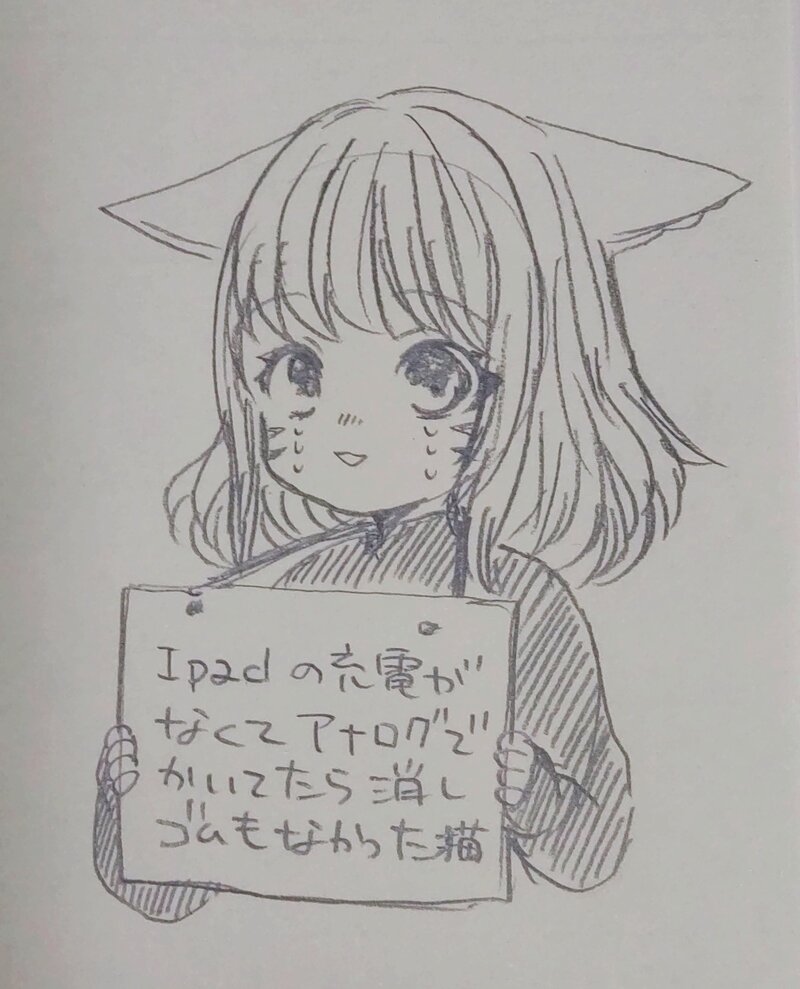 Ipadの充電が
なくてアナログで
かいてたら消し
ゴムもなかった猫